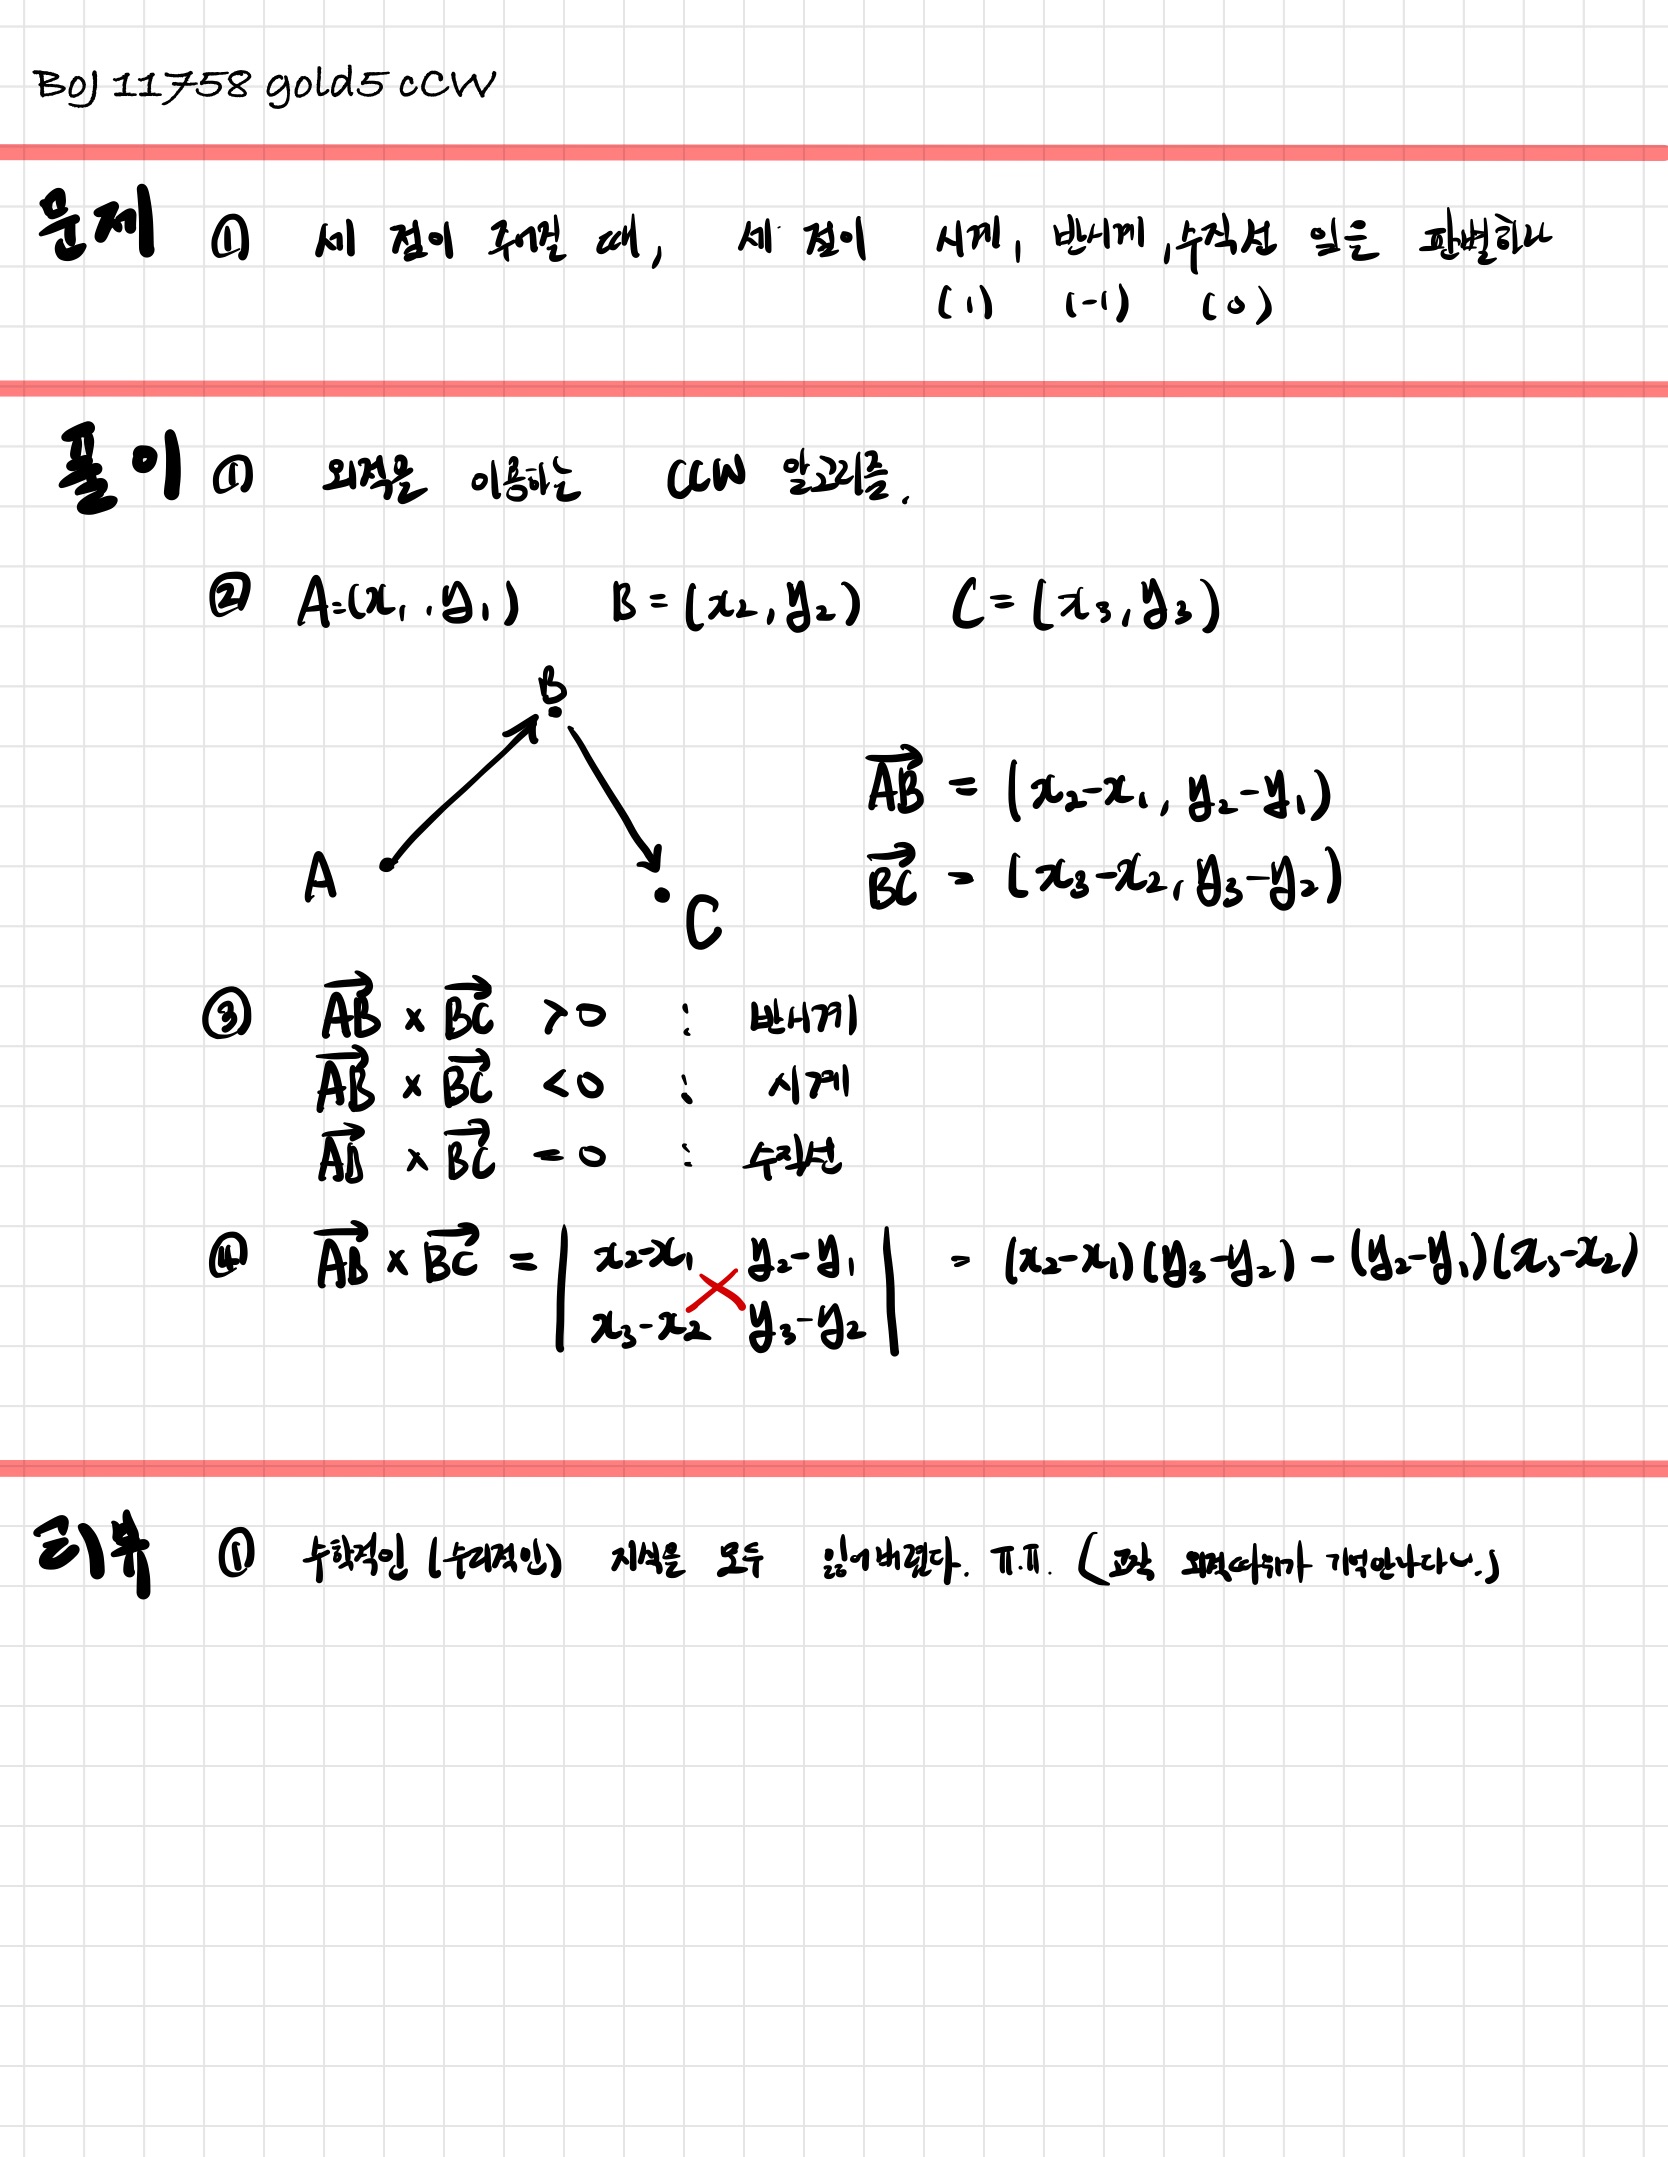 BOJ 11758 gold5 CCW
문제 ① 세 점이 주어질 때, 세 점이 시계, 반시계, 수직선 임을 판별하라
(1) (-1) (0)
풀이 ① 외적을 이용하는 CCW 알고리즘.
② A=(x₁, y₁) B=(x₂, y₂) C=(x₃, y₃)
B
A
C
AB→ = (x₂-x₁, y₂-y₁)
BC→ = (x₃-x₂, y₃-y₂)
③ AB→ × BC→ >0 : 반시계
AB→ × BC→ <0 : 시계
AB→ × BC→ =0 : 수직선
④ AB→ × BC→ = | x₂-x₁ y₂-y₁ | = (x₂-x₁)(y₃-y₂) - (y₂-y₁)(x₃-x₂)
| x₃-x₂ y₃-y₂ |
리뷰 ① 수학적인 (수리적인) 지식을 모두 잃어버렸다. ㅠ.ㅠ. (고작 외적따위가 기억안나다니.)